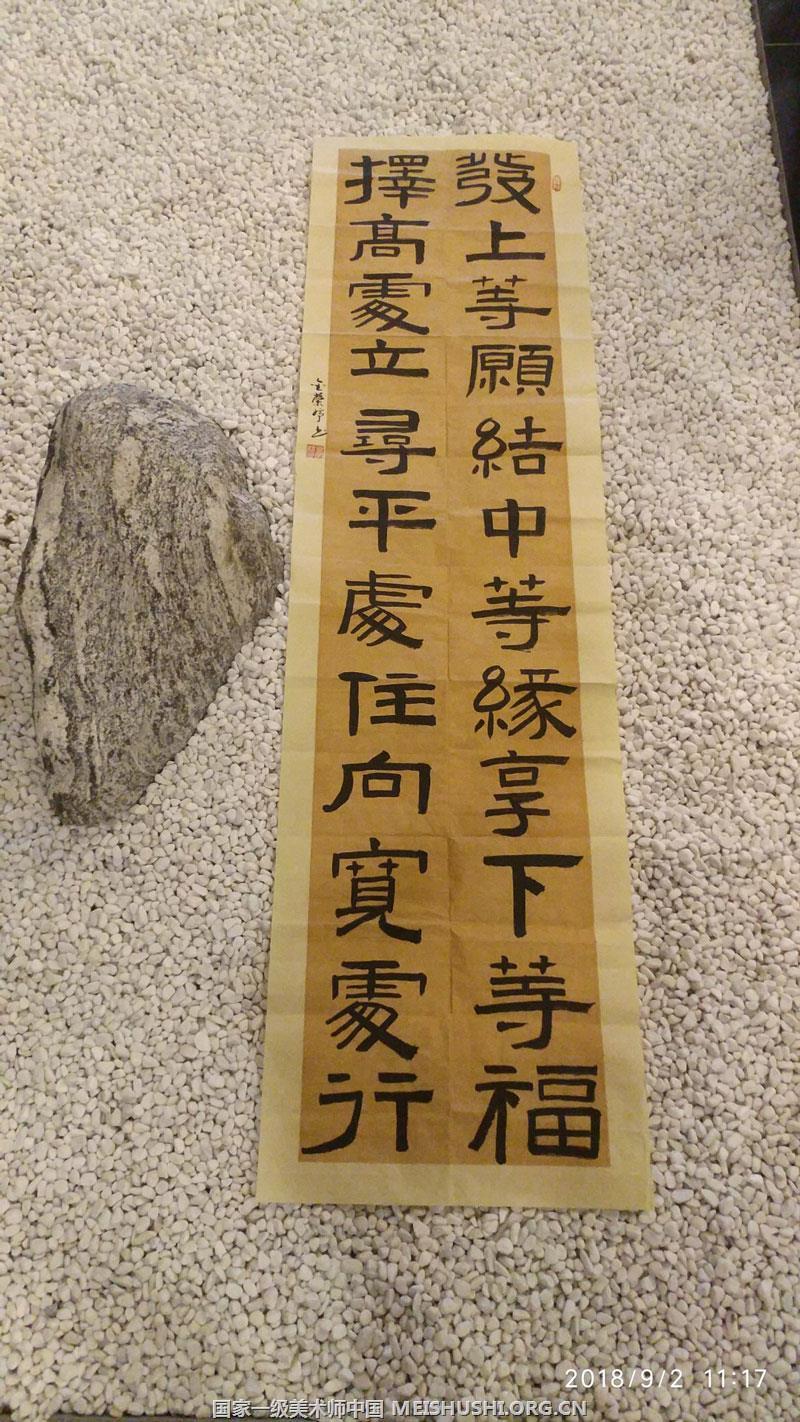 發上等願結中等緣享下等福
擇高處立尋平處住向寬處行
2018/9/2 11:17
国家一级美术师中国 MEISHUSHI.ORG.CN